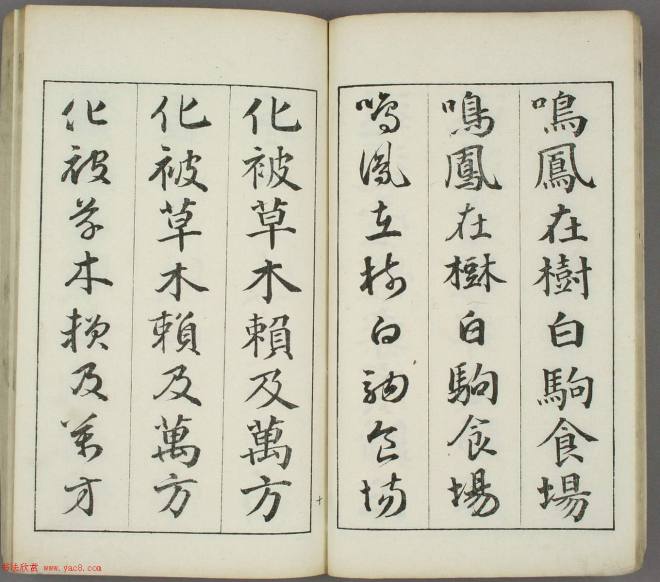 鳴鳳在樹白駒食場
鳴鳳在樹白駒食場
鳴鳳在樹白駒食場
十
化被草木賴及萬方
化被草木賴及萬方
化被草木賴及萬方
书法欣赏 www.yac8.com